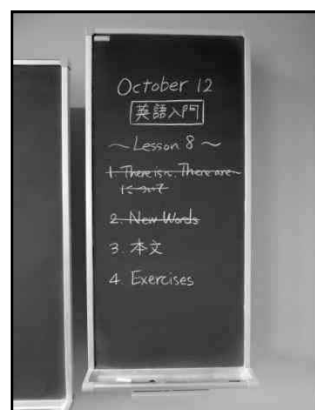 October 12
英語入門
～Lesson 8～
1. There is~. There are~
について
2. New Words
3. 本文
4. Exercises